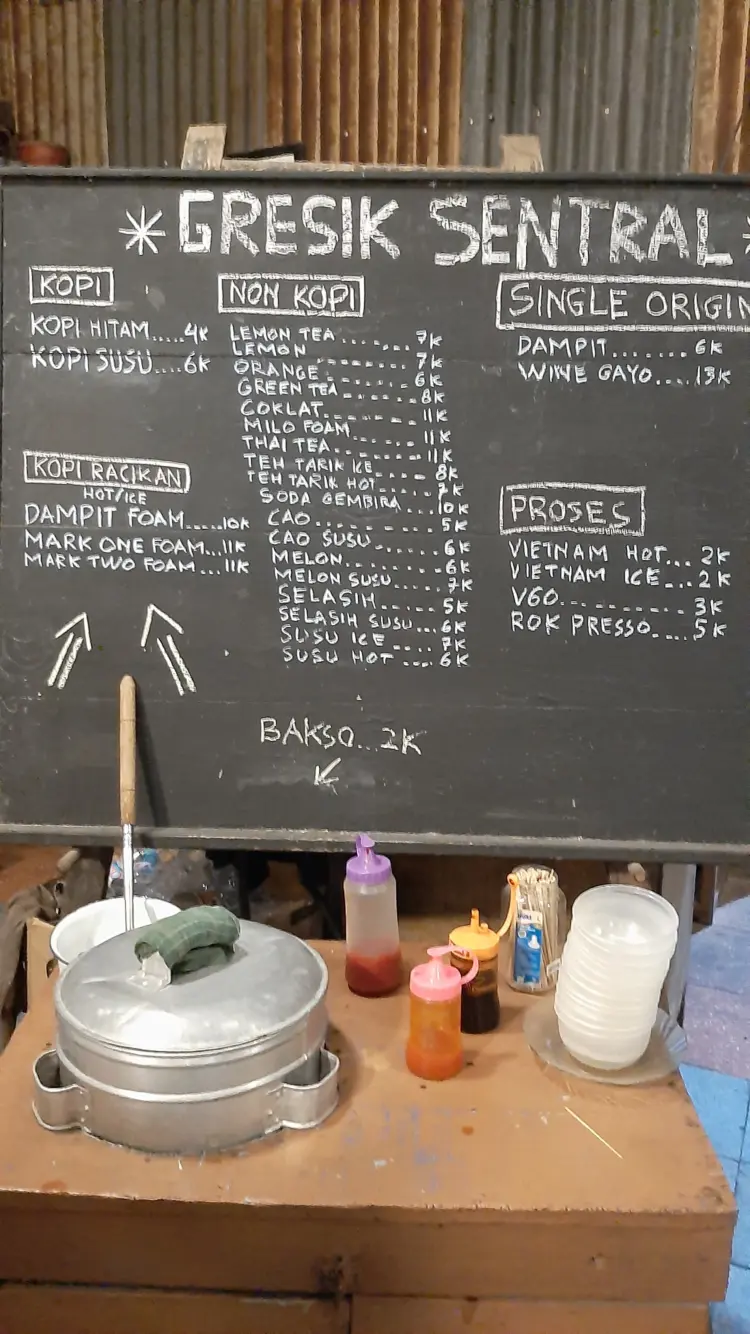 * GRESIK SENTRAL *
KOPI
KOPI HITAM.....4K
KOPI SUSU....6K
KOPI RACIKAN
HOT/ICE
DAMPIT FOAM.....10K
MARK ONE FOAM...11K
MARK TWO FOAM...11K
NON KOPI
LEMON TEA........7K
LEMON.........7K
ORANGE.........6K
GREEN TEA.......8K
COKLAT.........11K
MILO FOAM.......11K
THAI TEA.........11K
TEH TARIK ICE.....8K
TEH TARIK HOT.....7K
SODA GEMBIRA....10K
CAO...........5K
CAO SUSU.......6K
MELON.........6K
MELON SUSU......7K
SELASIH........5K
SELASIH SUSU...6K
SUSU ICE.....7K
SUSU HOT.....6K
BAKSO...2K
SINGLE ORIGIN
DAMPIT.......6K
WINE GAYO....13K
PROSES
VIETNAM HOT...2K
VIETNAM ICE...2K
V60.........3K
ROK PRESSO....5K